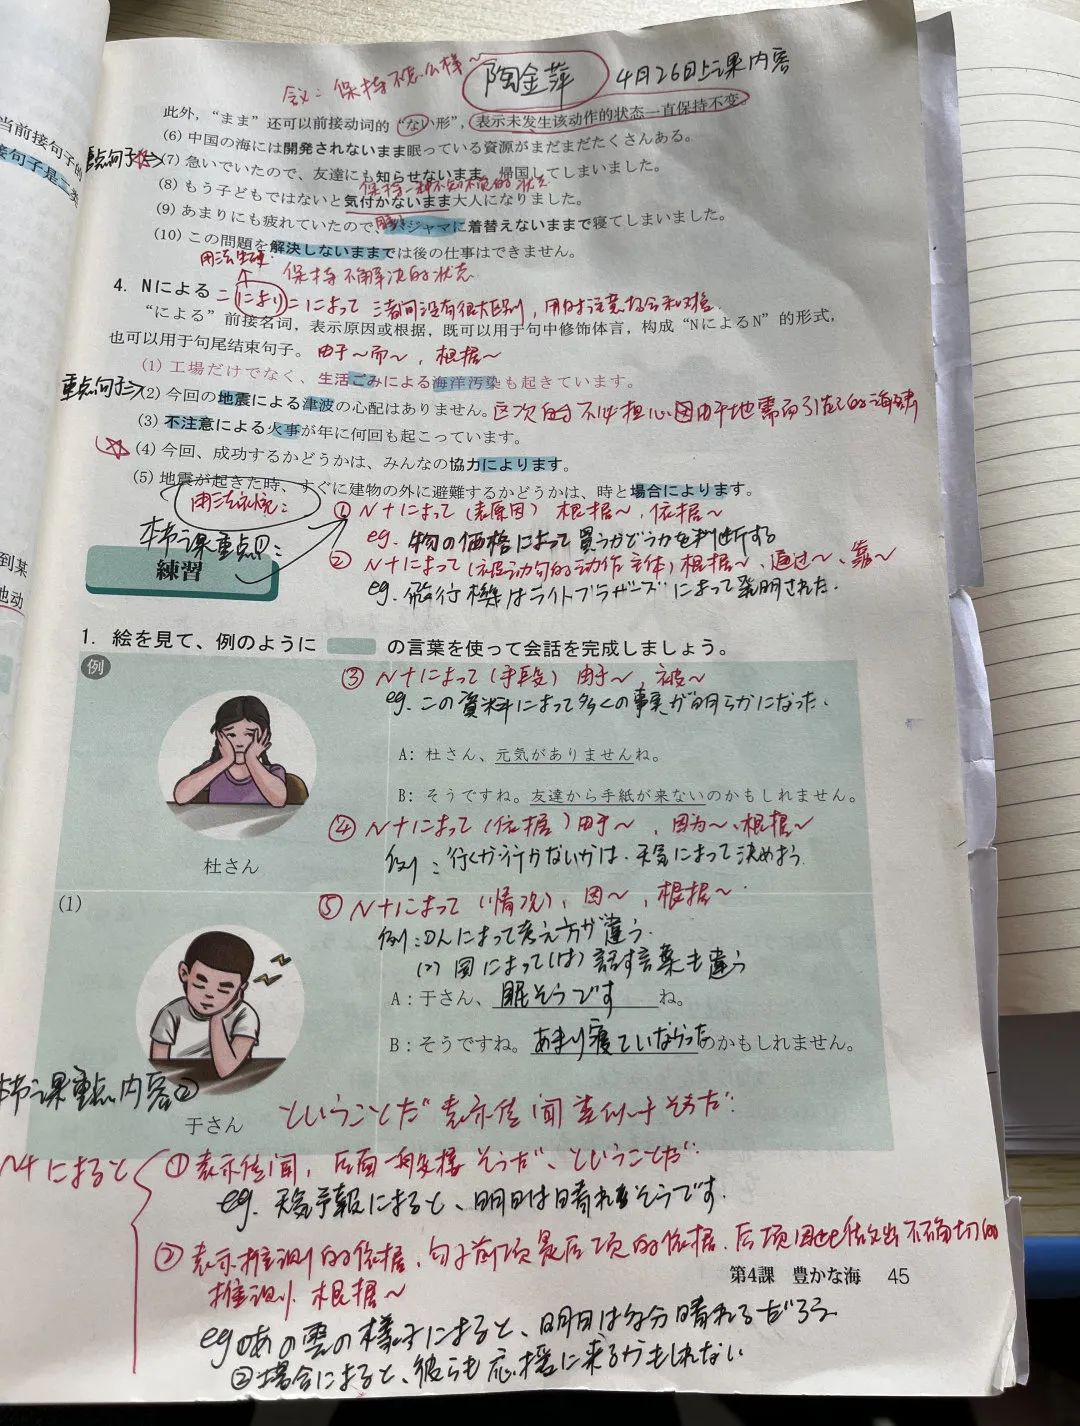 含义：保持不怎么样~
陶金萍 4月26日上课内容
此外，“まま”还可以前接动词的“ない形”，表示未发生该动作的状态一直保持不变。
(6) 中国の海には開発されないまま眠っている資源がまだまだたくさんある。
重点句子→(7) 急いでいたので、友達にも知らせないまま、帰国してしまいました。
(8) もう子どもではないと気付かないまま大人になりました。
(9) あまりにも疲れていたので、ジャマに着替えないままで寝てしまいました。
(10) この問題を解決しないままでは後の仕事はできません。
保持不解决的状态
4. Nによる=により=によって 三者间没有很大区别，用时注意场合和对象.
“による”前接名词，表示原因或根据，既可以用于句中修饰体言，构成“NによるN”的形式，
也可以用于句尾结束句子。 由于~而~，根据~
(1) 工場だけでなく、生活ごみによる海洋汚染も起きています。
重点句子→(2) 今回の地震による津波の心配はありません。这次的不必担心因由于地震而引起的海啸
(3) 不注意による火事が年に何回も起こっています。
(4) 今回、成功するかどうかは、みんなの協力によります。
(5) 地震が起きた時、すぐに建物の外に避難するかどうかは、時と場合によります。
① N+によって（表原因）根据~，依据~
eg. 物の価格によって買うかどうかを判断する
本节课重点①：
練習
② N+によって（被动句的动作主体）根据~、通过~、靠~
eg. 飛行機はライトブラザーズによって発明された.
1. 絵を見て、例のように の言葉を使って会話を完成しましょう。
例
③ N+によって（手段）由于~，被~
eg. この資料によって多くの事実が明らかになった.
A: 杜さん、元気がありませんね。
B: そうですね。友達から手紙が来ないのかもしれません。
④ N+によって（依据）由于~，因为~、根据~
例：行くか行かないかは、天気によって決めよう
杜さん
(1)
⑤ N+によって（情况），因~，根据~
例：①人によって考え方が違う.
(2) 国によって(は)話す言葉も違う
A: 于さん、眠そうですね。
B: そうですね。あまり寝ていなかったのかもしれません。
本节课重点内容②
于さん
ということだ 表示传闻 类似于そうだ.
N+によると
①表示传闻，后面一般接そうだ、ということだ.
eg. 天気予報によると、明日は晴れるそうです.
② 表示推测的依据，句子前项是后项的依据，后项因此做出不确切的
推测，根据~
第4課 豊かな海 45
eg①あの雲の様子によると、明日は多分晴れるだろう
②場合によると、彼らも応援に来るかもしれない